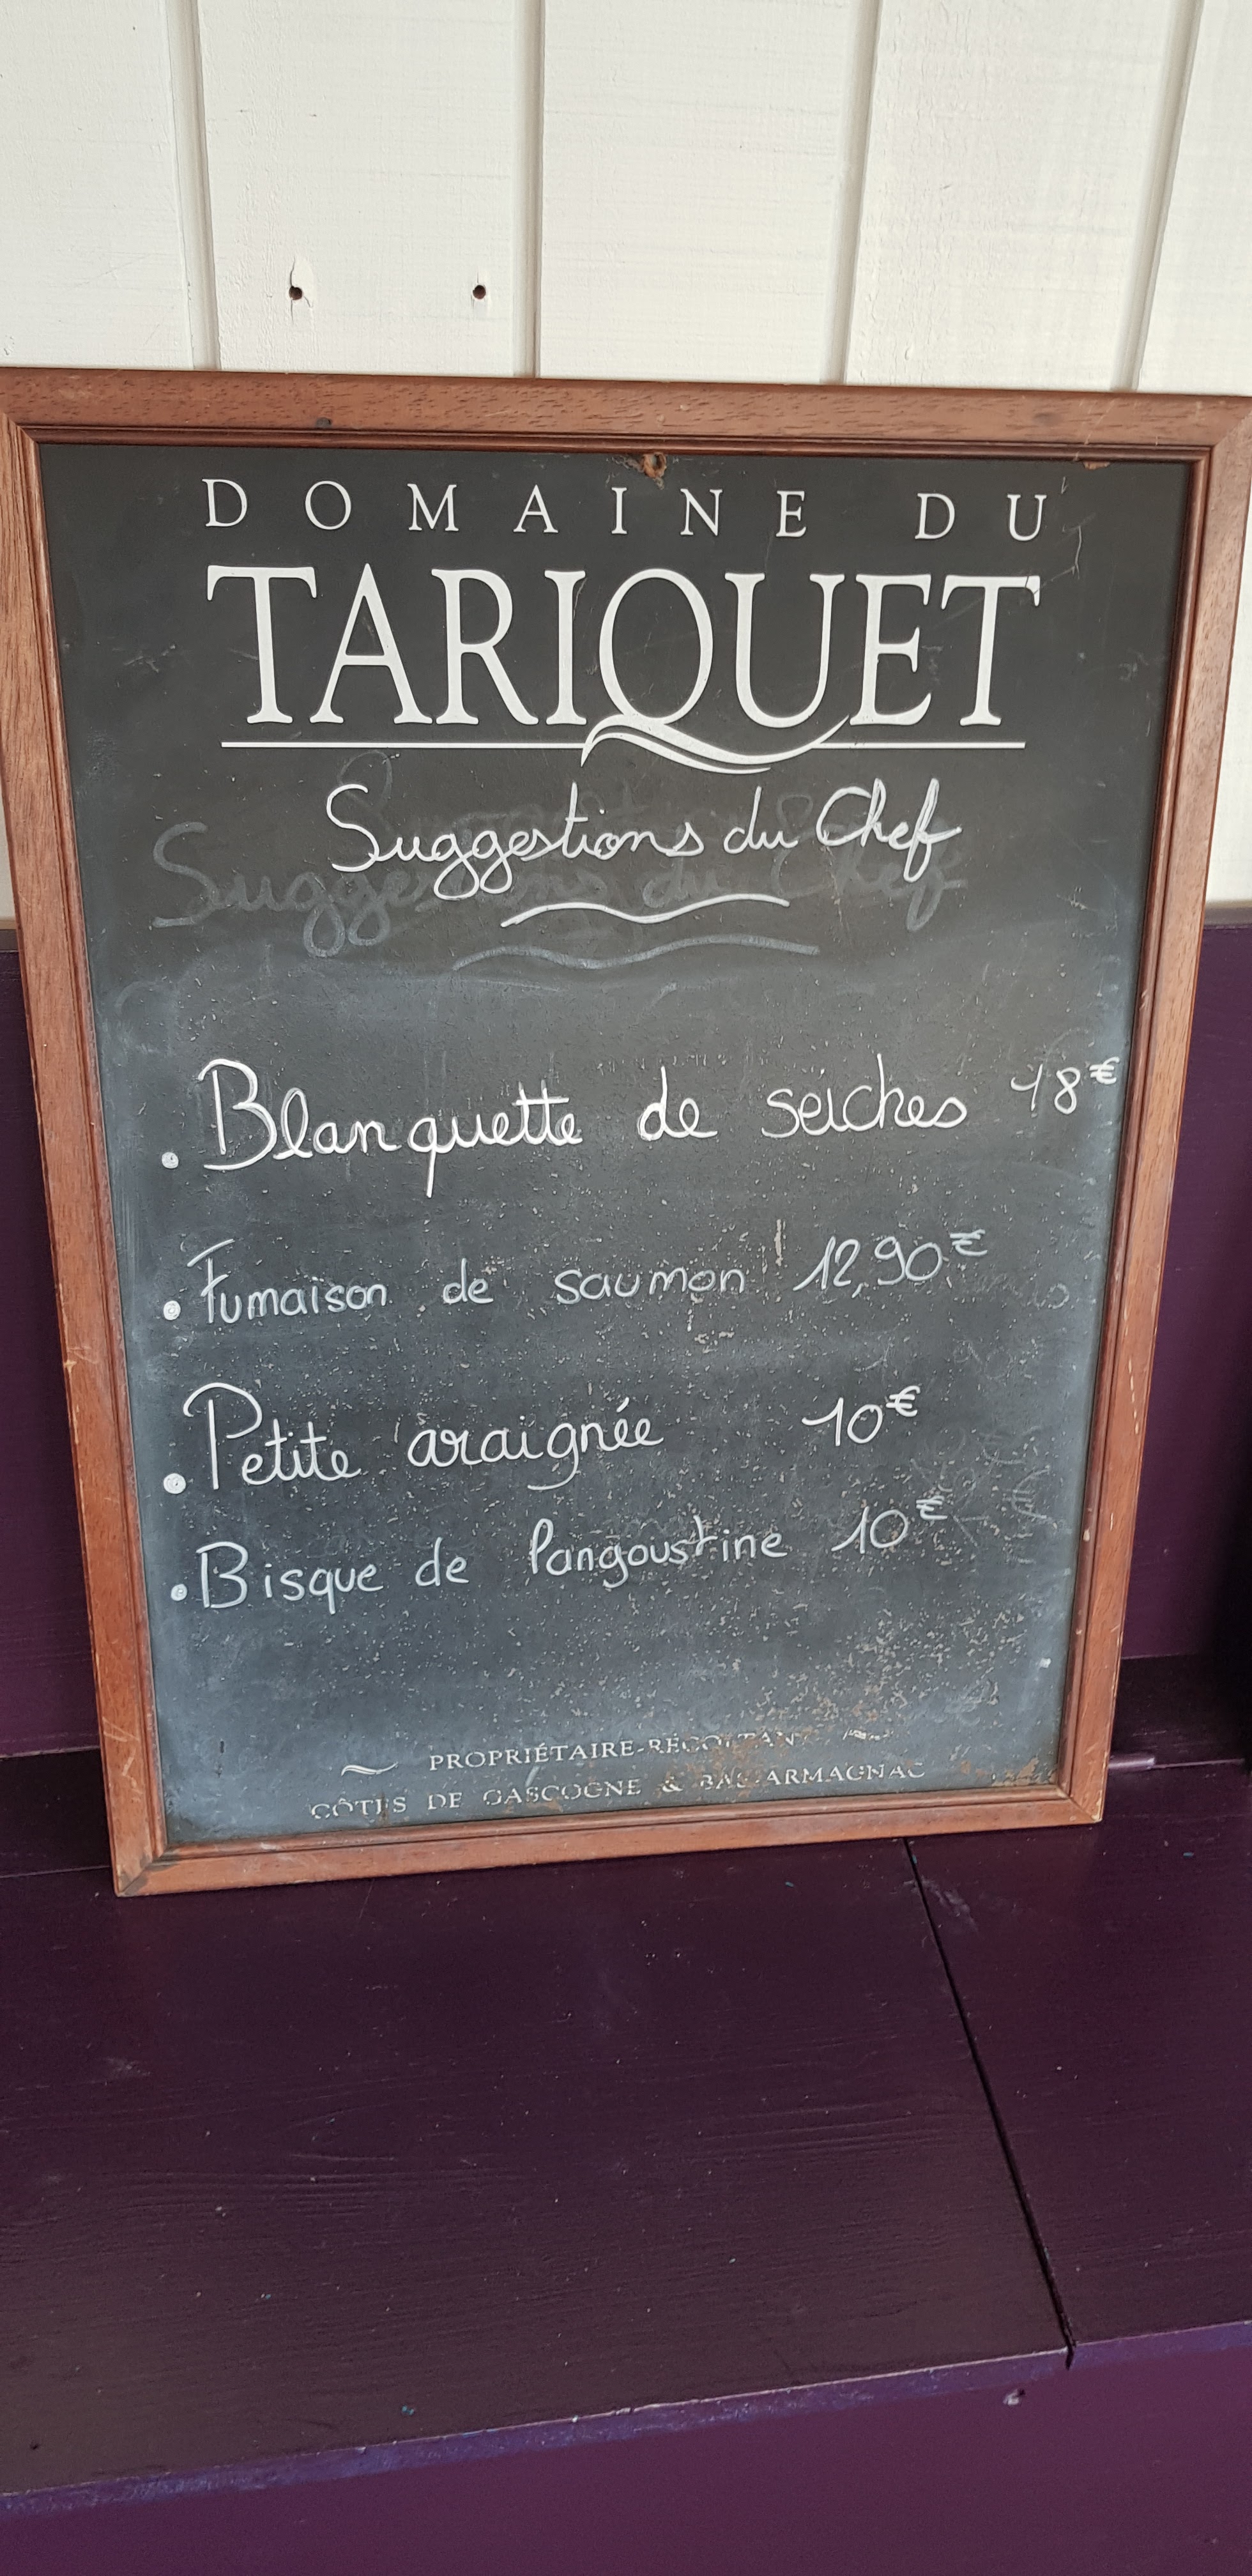 DOMAINE DU
TARIQUET
Suggestions du Chef
. Blanquette de seiches 18€
. Fumaison de saumon 12,90€
. Petite araignée 10€
. Bisque de langoustine 10€
PROPRIÉTAIRE-RÉCOLTANT
CÔTES DE GASCOGNE & BAS-ARMAGNAC